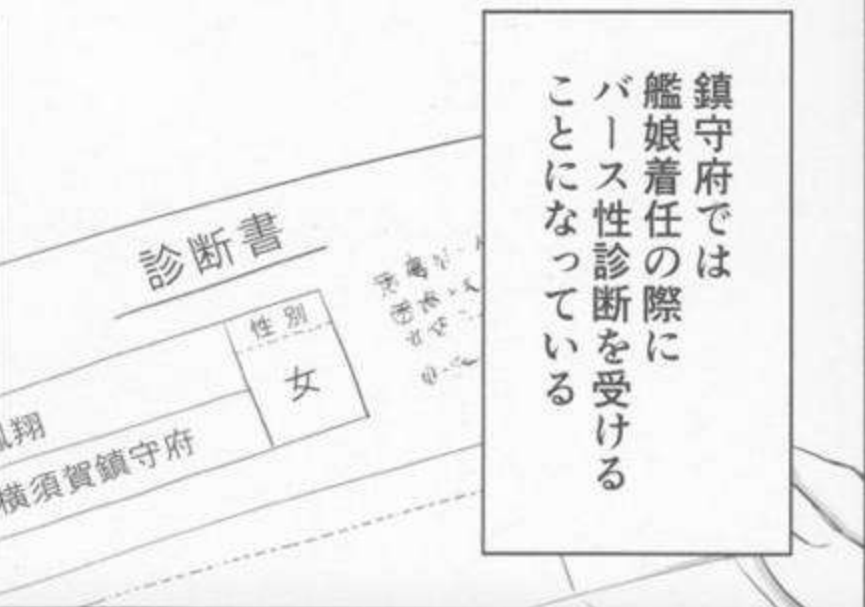 鎮守府では
艦娘着任の際に
バース性診断を受ける
ことになっている
診断書
性別
女
翔
横須賀鎮守府